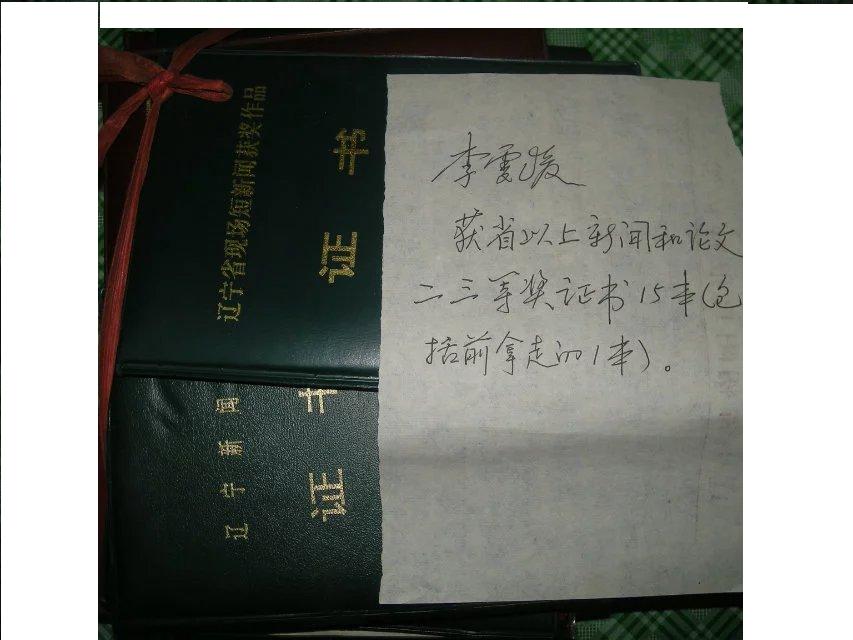 辽宁省现场短新闻获奖作品
证书
辽宁新闻
证书
李雯媛
获省以上新闻和论文
二三等奖证书15本(包
括前拿走的1本)。